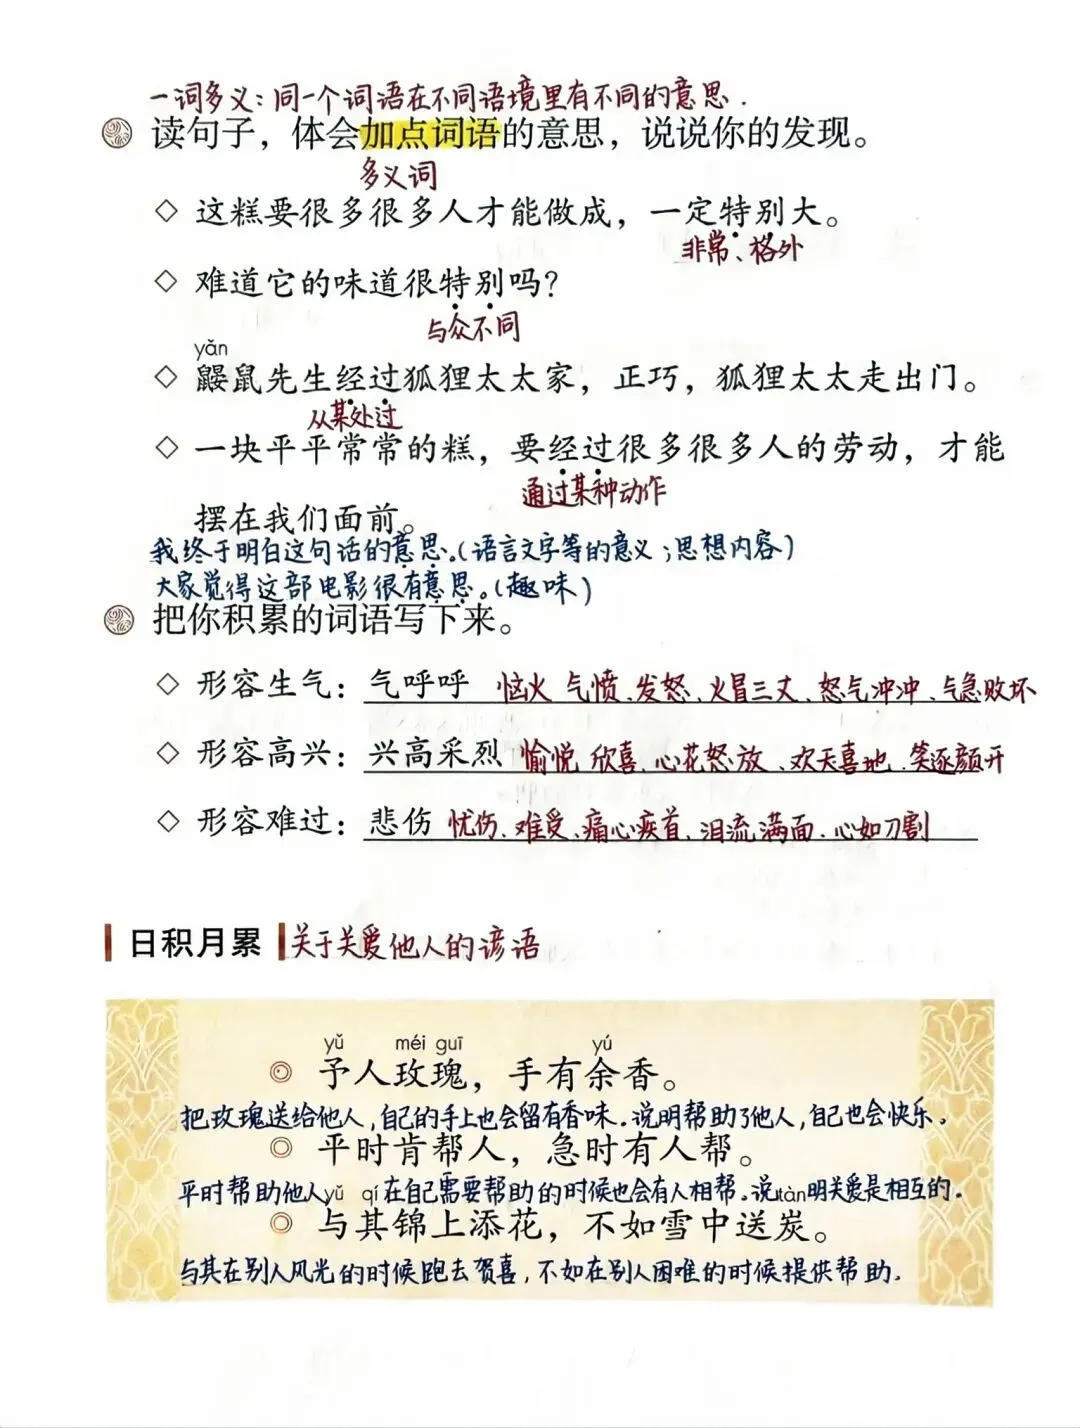 一词多义：同一个词语在不同语境里有不同的意思.
读句子，体会加点词语的意思，说说你的发现。
多义词
◇ 这糕要很多很多人才能做成，一定特别大。
非常、格外
◇ 难道它的味道很特别吗？
与众不同
yǎn
◇ 鼹鼠先生经过狐狸太太家，正巧，狐狸太太走出门。
从某处过
◇ 一块平平常常的糕，要经过很多很多人的劳动，才能
通过某种动作
摆在我们面前。
我终于明白这句话的意思。(语言文字等的意义；思想内容)
大家觉得这部电影很有意思。(趣味)
把你积累的词语写下来。
◇ 形容生气：气呼呼 恼火 气愤、发怒、火冒三丈、怒气冲冲、气急败坏
◇ 形容高兴：兴高采烈 愉悦 欣喜、心花怒放、欢天喜地、笑逐颜开
◇ 形容难过：悲伤 忧伤、难受、痛心疾首、泪流满面、心如刀割
日积月累 关于关爱他人的谚语
yǔ méi guī yú
◎ 予人玫瑰，手有余香。
把玫瑰送给他人，自己的手上也会留有香味.说明帮助了他人，自己也会快乐.
◎ 平时肯帮人，急时有人帮。
平时帮助他人，在自己需要帮助的时候也会有人相帮。说明关爱是相互的.
yǔ qí tàn
◎ 与其锦上添花，不如雪中送炭。
与其在别人风光的时候跑去贺喜，不如在别人困难的时候提供帮助.